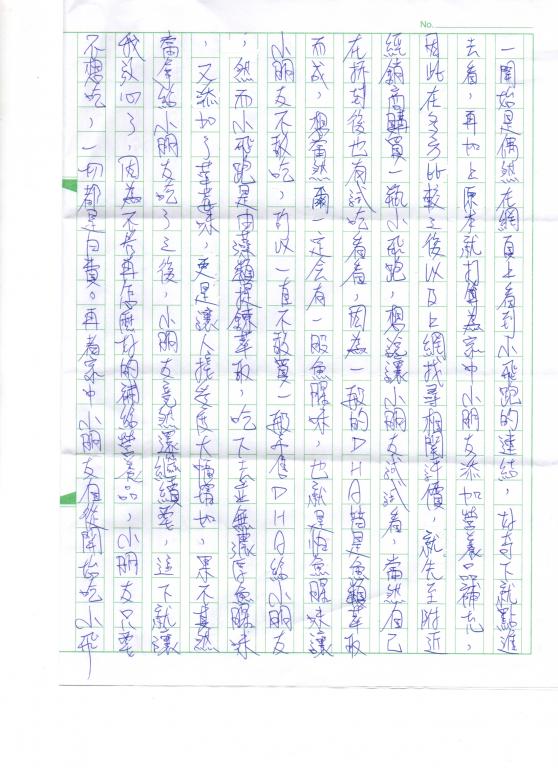 No.
一開始是偶然在網頁上看到小飛跑的連結，好奇下就點進
去看，再加上原本就打算為家中小朋友添加營養品補充，
因此在多方比較之後以及上網找尋相關評價，就先至附近
經銷商購買一瓶小飛跑，想說讓小朋友試試看，當然自己
在拆封後也有試吃看看，因為一般的DHA皆是魚類萃取
而成，想當然爾一定会有一股魚腥味，也就是怕魚腥味讓
小朋友不敢吃，所以一直不敢買一般市售DHA給小朋友
，然而小飛跑是由藻類提鍊萃取，吃下去並無濃厚魚腥味
，又添加了草莓味，更是讓人接受度大幅增加，果不其然
當拿給小朋友吃了之後，小朋友竟然還繼續要，這下就讓
我放心了，因為不管再怎麼好的補給營養品，小朋友只要
不想吃，一切都是白費。再者家中小朋友自從開始吃小飛